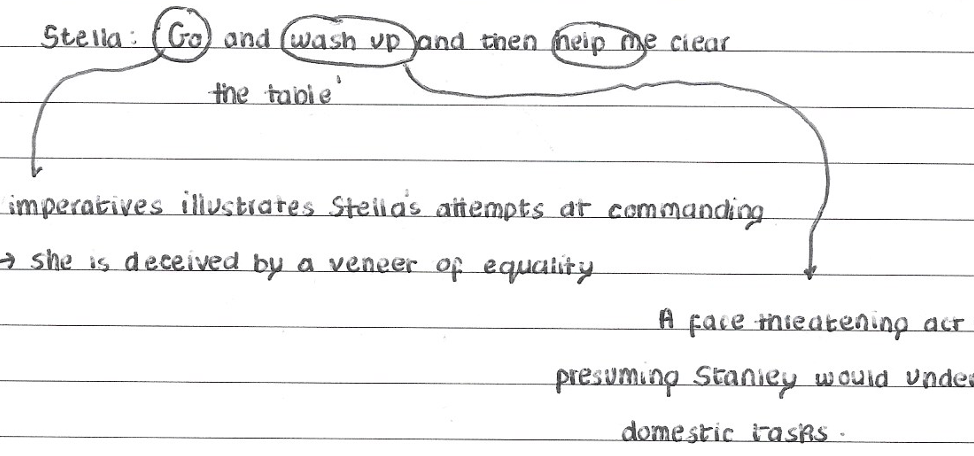 Stella: Go and wash up and then help me clear
the table'
imperatives illustrates Stella's attempts at commanding
→ she is deceived by a veneer of equality
A face threatening act
presuming Stanley would under
domestic tasks.